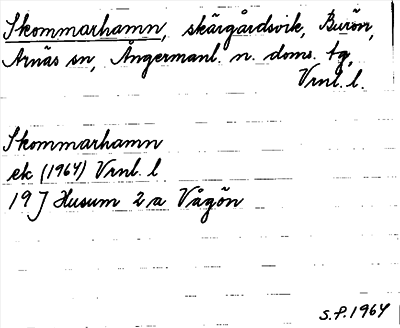 Skommarhamn, skärgårdsvik, Burön,
Arnäs sn, Ångermanl. n. doms. tg,
Vrnl. l.
Skommarhamn
ek (1964) Vrnl. l
19 J Husum 2 a Vågön
S.P. 1964